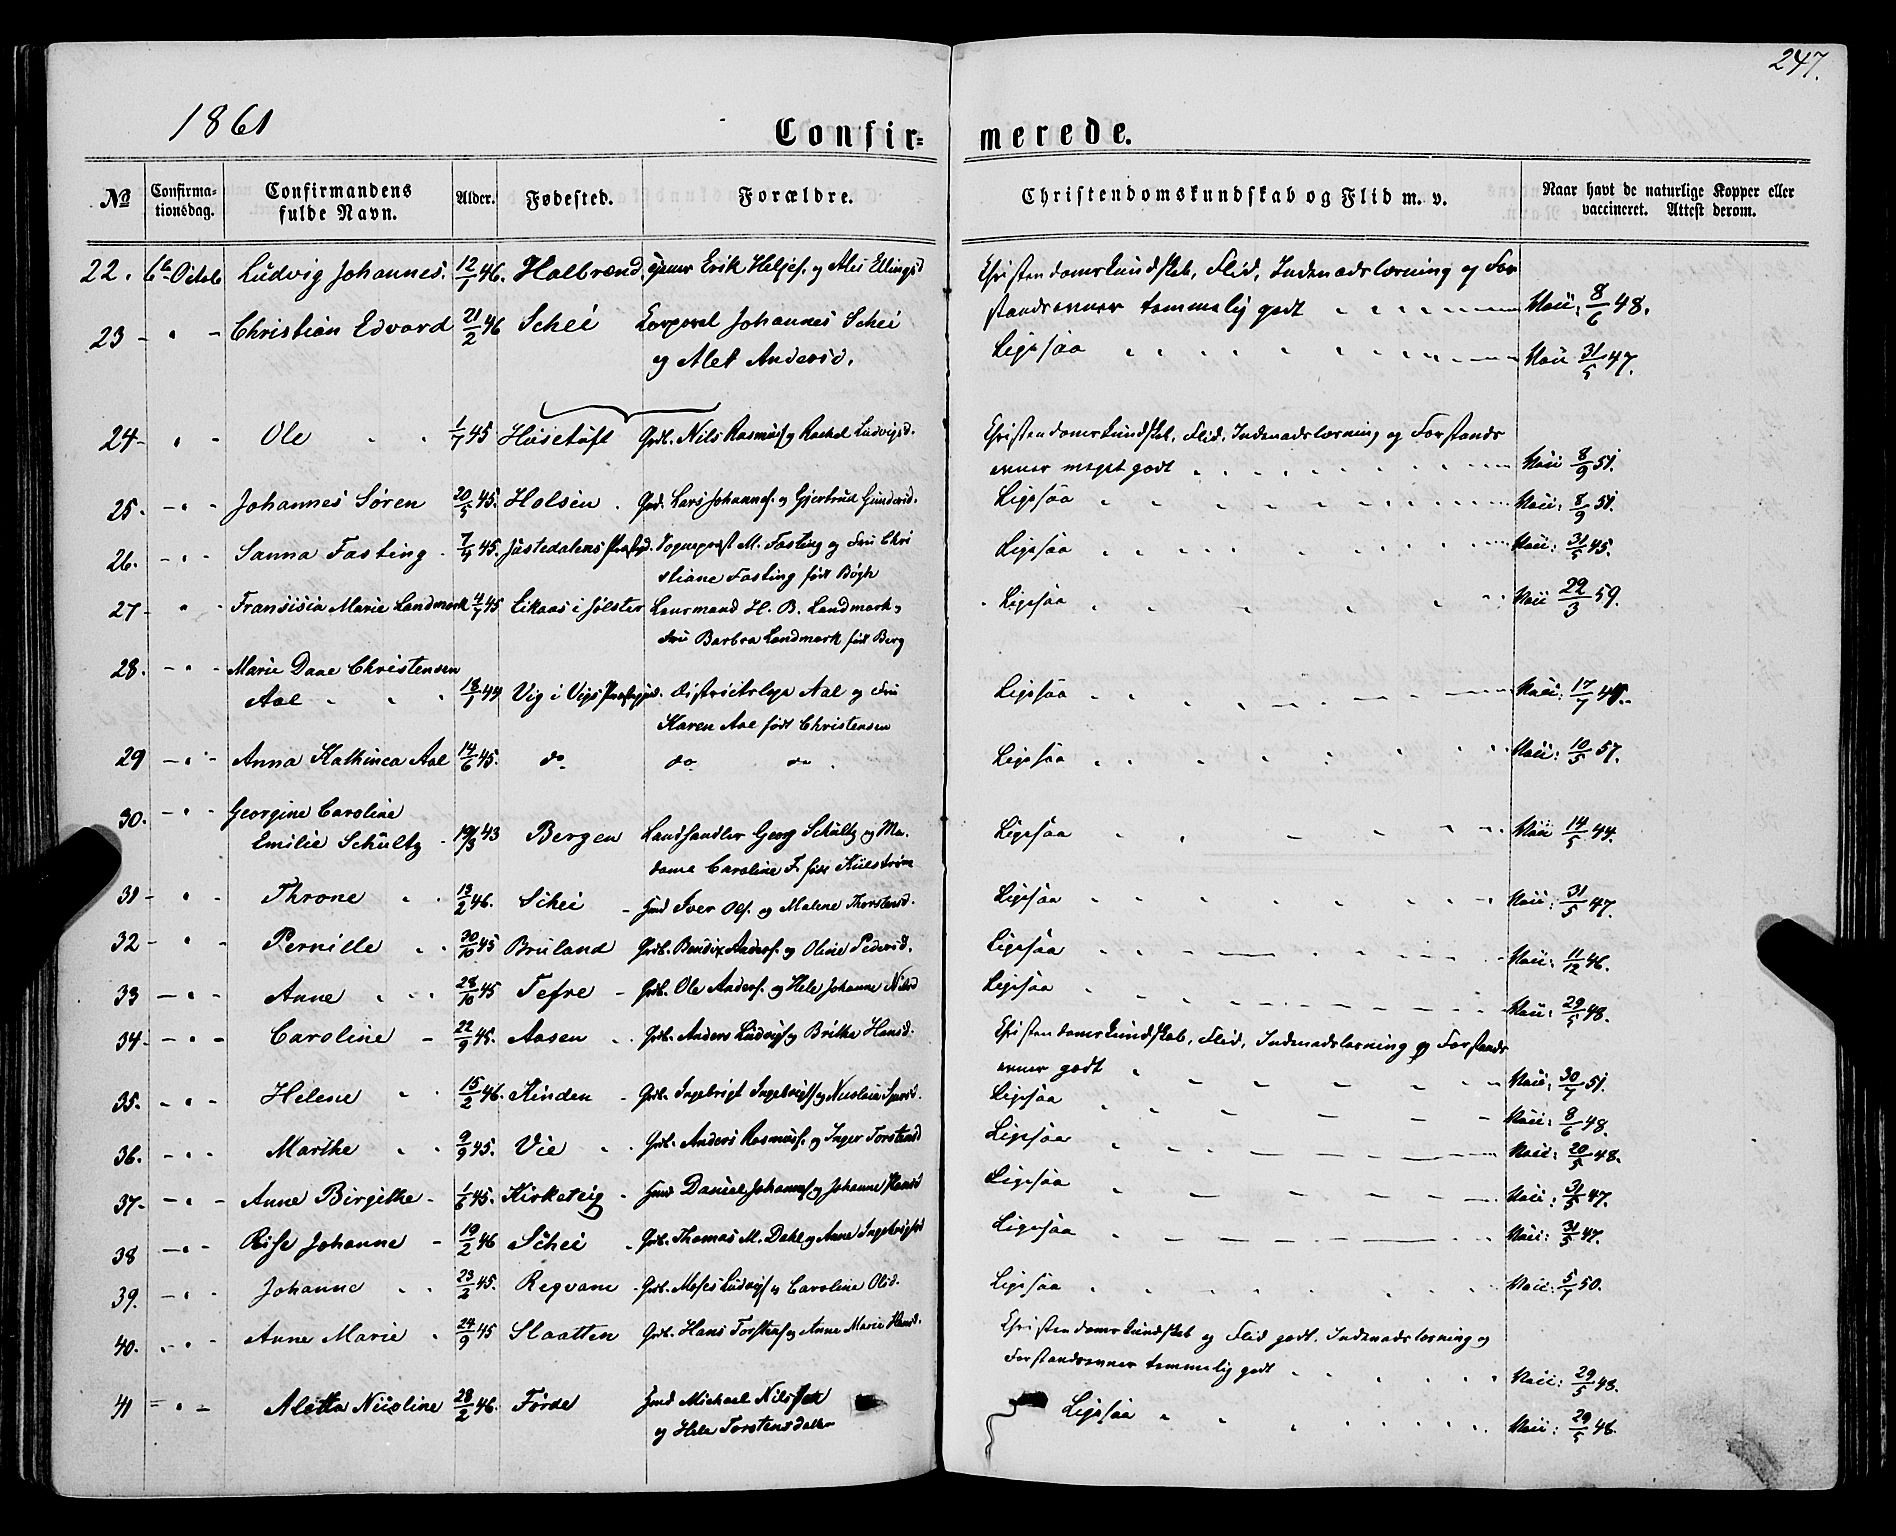 247.
1861
Confir- merede.
No Confirma-tionsdag. Confirmandens fulde Navn. Alder. Fødested. Forældre. Christendomskundskab og Flid m. v. Naar havt de naturlige Kopper eller vaccineret. Attest derom.
22. 6te Octob Ludvig Johannes. 12/1 46. Halbrænd Erik Heljes. og Ales Ellingsd Christendomskundskab, Flid, Indenadslæsning og For
standsevner temmelig godt Vaii: 8/6 48.
23 - " - Christian Edvard 21/2 46 Schei Korporal Johannes Schei Ligesaa Vaii 31/5 47.
og Alet Andersd.
24 - " - Ole 1/7 45 Husetuft Grdb. Nils Rasmus og Rachel Ludvigsd. Christendomskundskab, Flid, Indenadslæsning og Forstands
evner meget godt Vaii 8/9 51.
25. - " - Johannes Søren 20/5 45. Holsen Lars Johannes. og Gjertrud Gundersd. Ligesaa Vaii: 8/9 51.
26. - " - Sanna Fasting 7/4 45. Justedalens Sognepræst M. Fasting og Fru Chri Ligesaa Vaii: 31/5 45.
stiane Fasting født Bøgh
27 - " - Fransisia Marie Landmark 4/7 45 Eikaas i Jølster Lensmand H. B. Landmark, Ligesaa Vaii 22/3 59.
Fru Barbra Landmark født Berg
28. - " - Marie Daae Christensen
Aal 18/1 44 Vig i Vigs Distrietslæge Aal og Fru Ligesaa Vaii: 17/7
Karen Aal født Christensen
29 - " - Anna Kathinca Aal 14/6 45. do do do Ligesaa Vaii: 10/5 57.
30. - " - Georgine Caroline
Emilie Schultz 19/3 43 Bergen Landhandler Georg Schultz og Ma- Ligesaa Vaii 14/5 44.
dame Caroline F. født
31 - " - Throne 13/2 46. Schei Hmd Iver Ols. og Malene Thorstensd. Ligesaa Vaii: 31/5 47.
32 - " - Pernille 30/10 45 Bruland Grdb. Bendix Anders. og Oline Pedersd. Ligesaa Vaii: 11/12 46.
33 - " - Anne 28/10 45 Tefre Grdb. Ole Anders. og Hele Johanne Nilsd Ligesaa Vaii: 29/5 48.
34 - " - Caroline 22/9 45. Aasen Grdb. Anders Ludvigs og Brithe Hansd. Christendomskundskab, Flid, Indenadslæsning og Forstands
evner godt Vaii: 30/7 51.
35. - " - Helene 15/2 46. Kinden Grdb. Ingebrigt Ingebrigts og Ligesaa Vaii: 8/6 48.
36. - " - Marthe 9/9 45. Vie Grdb. Anders Rasmus. og Inger Torstensd Ligesaa Vaii: 20/5 48.
37 - " - Anne Birgithe 1/6 45. Kirketeig Hmd Daniel Johannes og Johanne Hansd Ligesaa Vaii: 31/5 47.
38 - " - Johanne 19/2 46 Schei Grdb. Thomas M. Dahl og Anne Ingebrigtsd Ligesaa Vaii: 31/5 47.
39. - " - Johanne 23/2 45. Regvam Grdb. Moses Ludvigs og Caroline Olsd. Ligesaa Vaii: 5/7 50.
40. - " - Anne Marie 24/9 45 Slaatten Grdb. Hans Torstens og Anne Marie Hansd. Christendomskundskab og Flid godt. Indenadslæsning og
Forstandsevner temmelig godt Vaii: 29/5 48.
41 - " - Aletta Nicoline 28/2 46. Førde Hmd Michael Nilsson Ligesaa Vaii: 29/5 48.
og Hele Torstensdatter